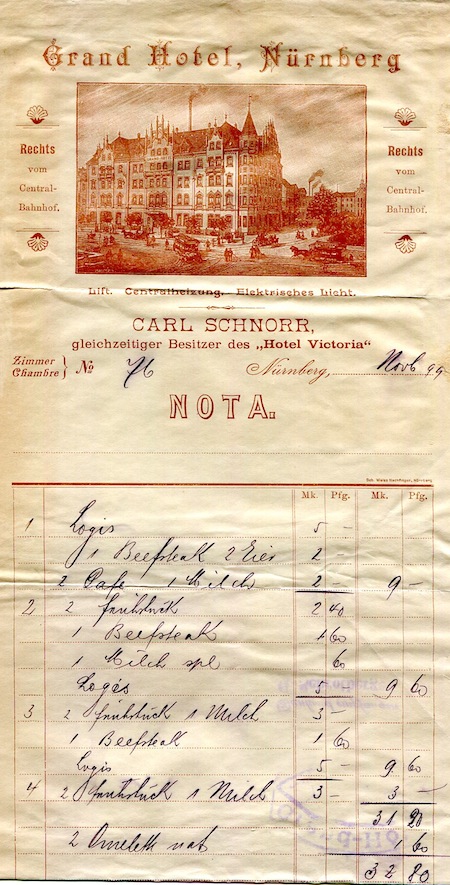 Grand Hotel, Nürnberg
Rechts
vom
Central-
Bahnhof.
Rechts
vom
Central-
Bahnhof.
Lift. Centralheizung. Elektrisches Licht.
CARL SCHNORR,
gleichzeitiger Besitzer des „Hotel Victoria“
Zimmer
Chambre } No 76 Nürnberg, Novb 99
NOTA.
Mk. Pfg. Mk. Pfg.
1 Logis 5 –
1 Beefsteak 2 Eier 2 –
2 Cafe 1 Milch 2 – 9 –
2 2 Frühstück 2 40
1 Beefsteak 1 60
1 Milch 60
Logis 5 9 60
3 2 Frühstück 1 Milch 3 –
1 Beefsteak 1 60
Logis 5 – 9 60
4 2 Frühstück 1 Milch 3 – 3 –
31 20
2 Omelette nat 1 60
32 80